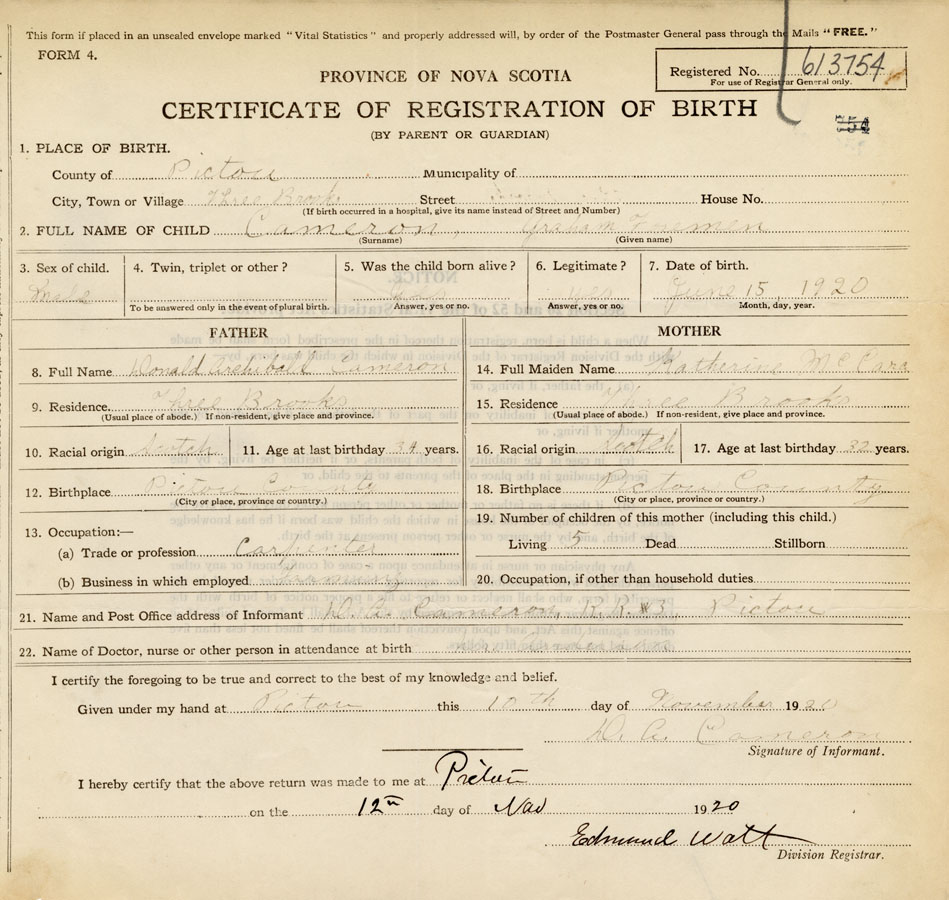 This form if placed in an unsealed envelope marked "Vital Statistics" and properly addressed will, by order of the Postmaster General pass through the Mails "FREE."
FORM 4.
PROVINCE OF NOVA SCOTIA
Registered No. 613754
For use of Registrar General only.
CERTIFICATE OF REGISTRATION OF BIRTH
(BY PARENT OR GUARDIAN)
754
1. PLACE OF BIRTH.
County of Pictou Municipality of
City, Town or Village Three Brooks Street House No.
(If birth occurred in a hospital, give its name instead of Street and Number)
2. FULL NAME OF CHILD Cameron, Graham
(Surname) (Given name)
3. Sex of child. 4. Twin, triplet or other? 5. Was the child born alive? 6. Legitimate? 7. Date of birth.
Male yes yes June 15, 1920
To be answered only in the event of plural birth. Answer, yes or no. Answer, yes or no. Month, day, year.
FATHER MOTHER
8. Full Name Donald Archibald Cameron 14. Full Maiden Name Katherine McCara
9. Residence Three Brooks 15. Residence Three Brooks
(Usual place of abode.) If non-resident, give place and province. (Usual place of abode.) If non-resident, give place and province.
10. Racial origin Scotch 11. Age at last birthday 34 years. 16. Racial origin Scotch 17. Age at last birthday 32 years.
12. Birthplace Pictou County 18. Birthplace Pictou County
(City or place, province or country.) (City or place, province or country.)
13. Occupation:— 19. Number of children of this mother (including this child.)
(a) Trade or profession Carpenter Living 5 Dead Stillborn
(b) Business in which employed 20. Occupation, if other than household duties
21. Name and Post Office address of Informant D. A. Cameron, R.R. #3, Pictou
22. Name of Doctor, nurse or other person in attendance at birth
I certify the foregoing to be true and correct to the best of my knowledge and belief.
Given under my hand at Pictou this 10th day of November 1920
D. A. Cameron
Signature of Informant.
I hereby certify that the above return was made to me at Pictou
on the 12th day of Nov 1920
Edmund Watt
Division Registrar.